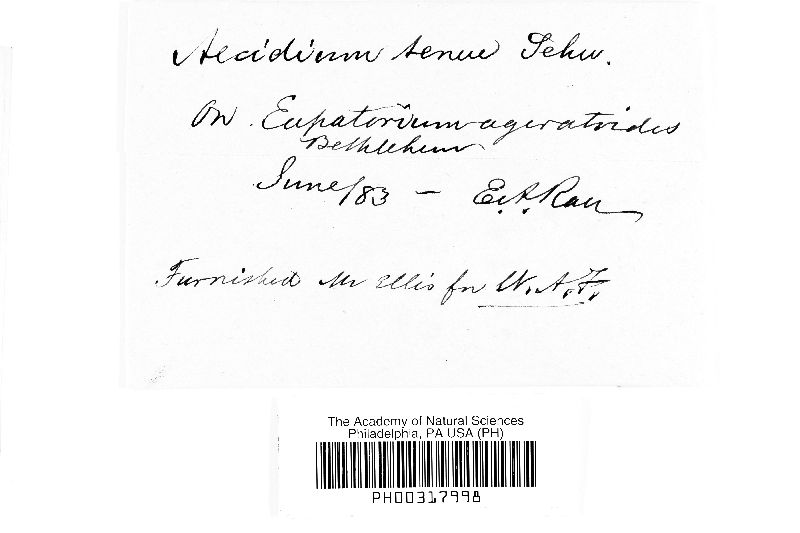 Aecidium tenue Schw.
On Eupatorium ageratoides
Bethlehem
June/83 — E.A. Rau
Furnished Mr Ellis for N.A.F.
The Academy of Natural Sciences
Philadelphia, PA USA (PH)
PH00317998